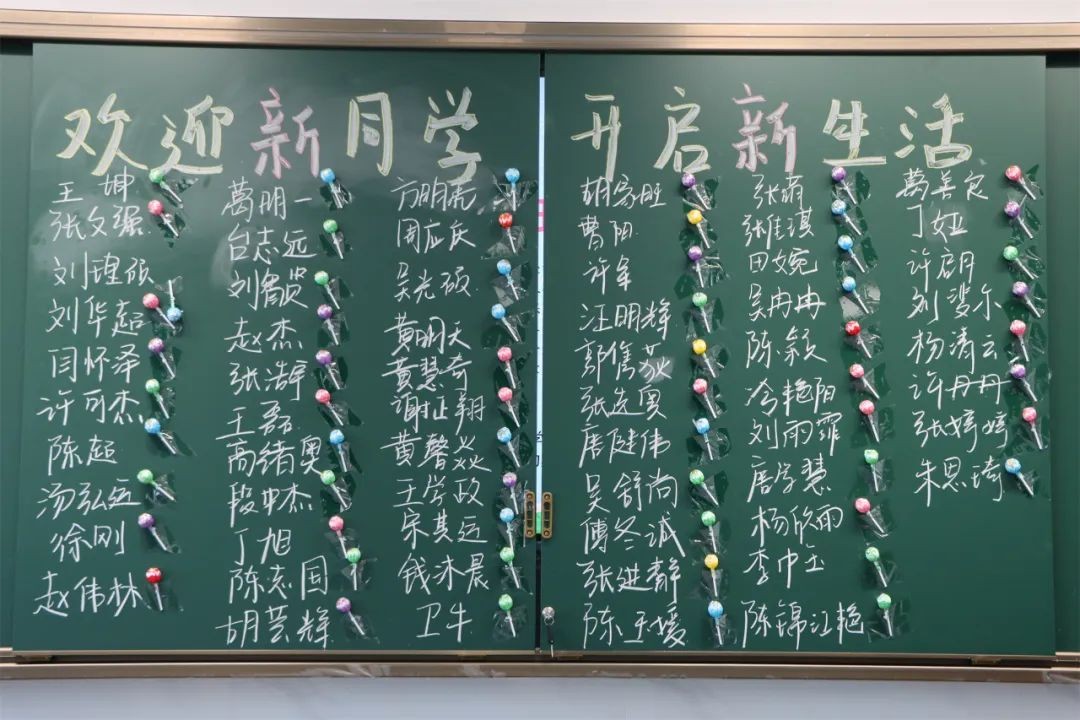 欢迎新同学 开启新生活
王坤
张文强
刘理强
刘华超
闫怀泽
许可杰
陈超
汤弘远
徐刚
赵伟林
葛明一
台志远
赵杰
张浩宇
王磊
高绪奥
段中杰
丁旭
陈志国
胡芸辉
方明亮
周应庆
吴光硕
黄明天
黄慧奇
谢正翔
黄馨焱
王学政
宋其远
钱沐晨
卫牛
胡家旺
曹阳
许军
汪明辉
郭隽荻
张连奥
唐健伟
吴舒尚
傅冬诚
张进静
陈玉媛
张雨
张佳琪
田婉
吴冉冉
陈颖
冷艳阳
刘雨霏
唐学慧
杨欣雨
李中玉
陈锦江艳
葛善良
丁娅
许启月
刘婆尔
杨清云
许丹丹
张婷婷
朱思琦